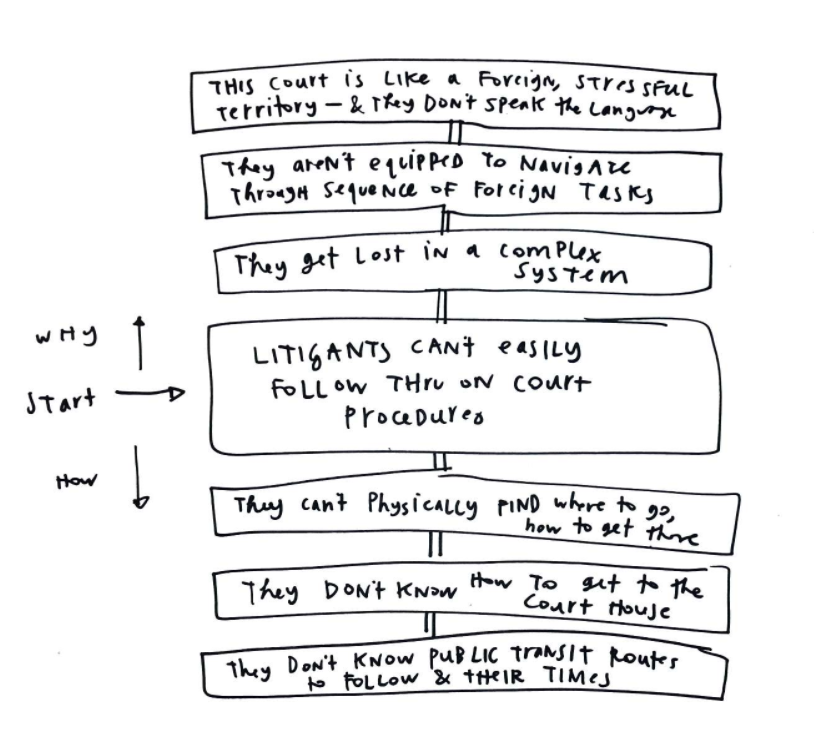 THIS Court is Like a Foreign, STressFUL
Territory — & They DON't speak the Language
They aren't equipped to Navigate
Through Sequence of Foreign Tasks
They get Lost in a complex
System
WHY
LITIGANTS CAN't easily
Follow THru on Court
Procedures
Start
How
They can't Physically FIND where to go,
how to get there
They DON't Know How To get to the
Court House
They Don't Know PUBLIC Transit Routes
to Follow & THEIR TIMES